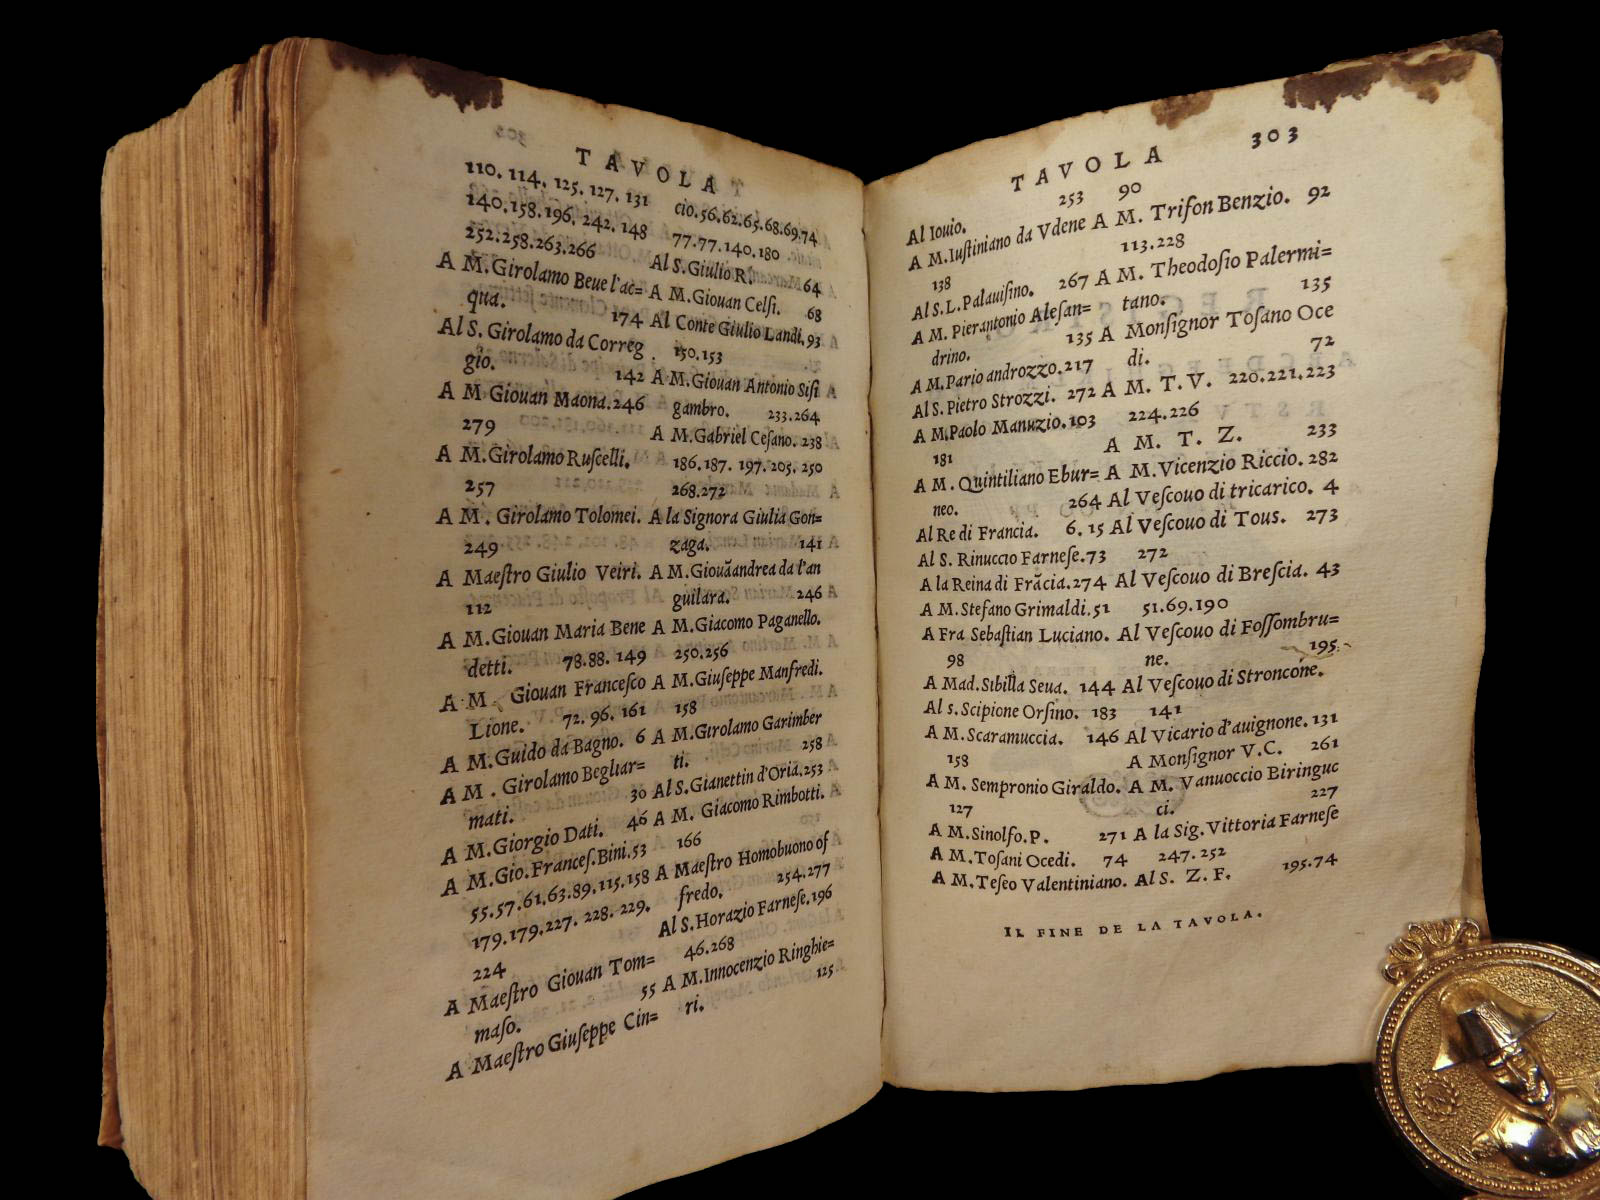 TAVOLA
110. 114. 125. 127. 131
140. 158. 196. 242. 148
252. 258. 263. 266
A M. Girolamo Beue l'ac=
qua. 174
Al S. Girolamo da Correg
gio. 142
A M Giouan Maona. 246
279
A M. Girolamo Ruſcelli.
257
A M. Girolamo Tolomei.
249
A Maeſtro Giulio Veiri.
112
A M. Giouan Maria Bene
detti. 78. 88. 149
A M Giouan Franceſco
Lione. 72. 96. 161
A M. Guido da Bagno. 6
A M. Girolamo Begliar=
mati. 30
A M. Giorgio Dati. 46
A M. Gio. Franceſ. Bini. 53
55. 57. 61. 63. 89. 115. 158
179. 179. 227. 228. 229.
224
A Maeſtro Giouan Tom=
maſo. 55
A Maeſtro Giuſeppe Cin=
cio. 56. 62. 65. 68. 69. 74
77. 77. 140. 180
Al S. Giulio R. 64
A M. Giouan Celſi. 68
Al Conte Giulio Landi. 93
150. 153
A M. Giouan Antonio Siſi
gambro. 233. 264
A M. Gabriel Ceſano. 238
186. 187. 197. 205. 250
268. 272
A la Signora Giulia Gon=
zaga. 141
A M. Giouãandrea da l'an
guilara. 246
A M. Giacomo Paganello.
250. 256
A M. Giuſeppe Manfredi.
158
A M. Girolamo Garimber
ti. 258
Al S. Gianettin d'Oria. 253
A M. Giacomo Rimbotti.
166
A Maeſtro Homobuono of
fredo. 254. 277
Al S. Horazio Farneſe. 196
46. 268
A M. Innocenzio Ringhie=
ri. 125
TAVOLA 303
Al Iouio. 253
A M. Iuſtiniano da Vdene
138
Al S. L. Palauiſino. 267
A M. Pierantonio Aleſan=
drino. 135
A M. Pario androzzo. 217
Al S. Pietro Strozzi. 272
A M. Paolo Manuzio. 103
181
A M. Quintiliano Ebur=
neo. 264
Al Re di Francia. 6. 15
Al S. Rinuccio Farneſe. 73
A la Reina di Frãcia. 274
A M. Stefano Grimaldi. 51
A Fra Sebaſtian Luciano.
98
A Mad. Sibilla Seua. 144
Al s. Scipione Orſino. 183
A M. Scaramuccia. 146
158
A M. Sempronio Giraldo.
127
A M. Sinolfo. P. 271
A M. Toſani Ocedi. 74
A M. Teſeo Valentiniano.
90
A M. Trifon Benzio. 92
113. 228
A M. Theodoſio Palermi=
tano. 135
A Monſignor Toſano Oce
di. 72
A M. T. V. 220. 221. 223
224. 226
A M. T. Z. 233
A M. Vicenzio Riccio. 282
Al Veſcouo di tricarico. 4
Al Veſcouo di Tous. 273
272
Al Veſcouo di Breſcia. 43
51. 69. 190
Al Veſcouo di Foſſombru=
ne. 195
Al Veſcouo di Stroncone.
141
Al Vicario d'auignone. 131
A Monſignor V. C. 261
A M. Vanuoccio Biringuc
ci. 227
A la Sig. Vittoria Farneſe
247. 252
Al S. Z. F. 195. 74
IL FINE DE LA TAVOLA.
N